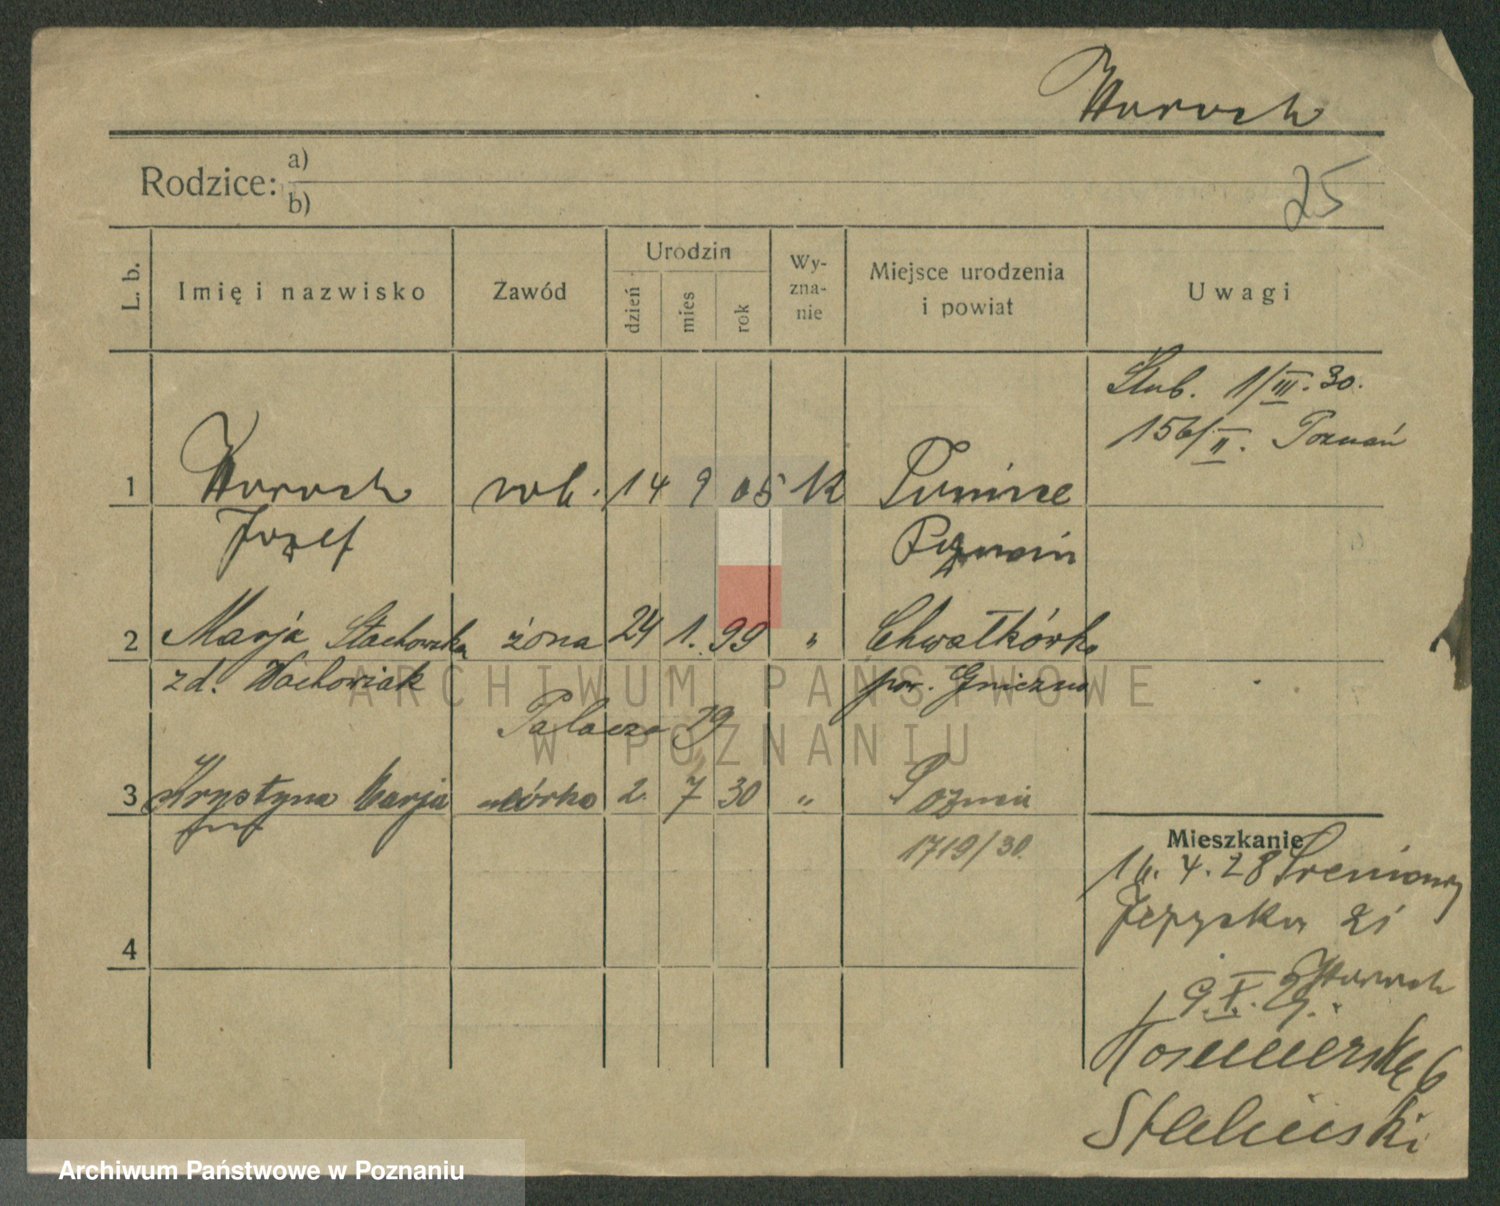 Woroch
Rodzice: a)
b)
25
L. b. Imię i nazwisko Zawód Urodzin dzień mies rok Wy-zna-nie Miejsce urodzenia i powiat Uwagi
Ślub. 1/III. 30.
156/II. Poznań
1 Woroch rob. 14 9 05 k
Józef Poznań
2 Marja Stachowska żona 24 1. 99 " Chwałkówko
zd. Wachowiak pow. Gniezno
Palacza 79
3 Krystyna Marja córka 2. 7 30 " Poznań
1719/30.
4
Mieszkanie
4. 28
Jeżycka
Woroch
9. X. 29.
6
ARCHIWUM PAŃSTWOWE
W POZNANIU
Archiwum Państwowe w Poznaniu